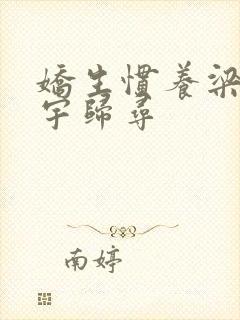 嬌生慣養梁
宇歸尋
南婷